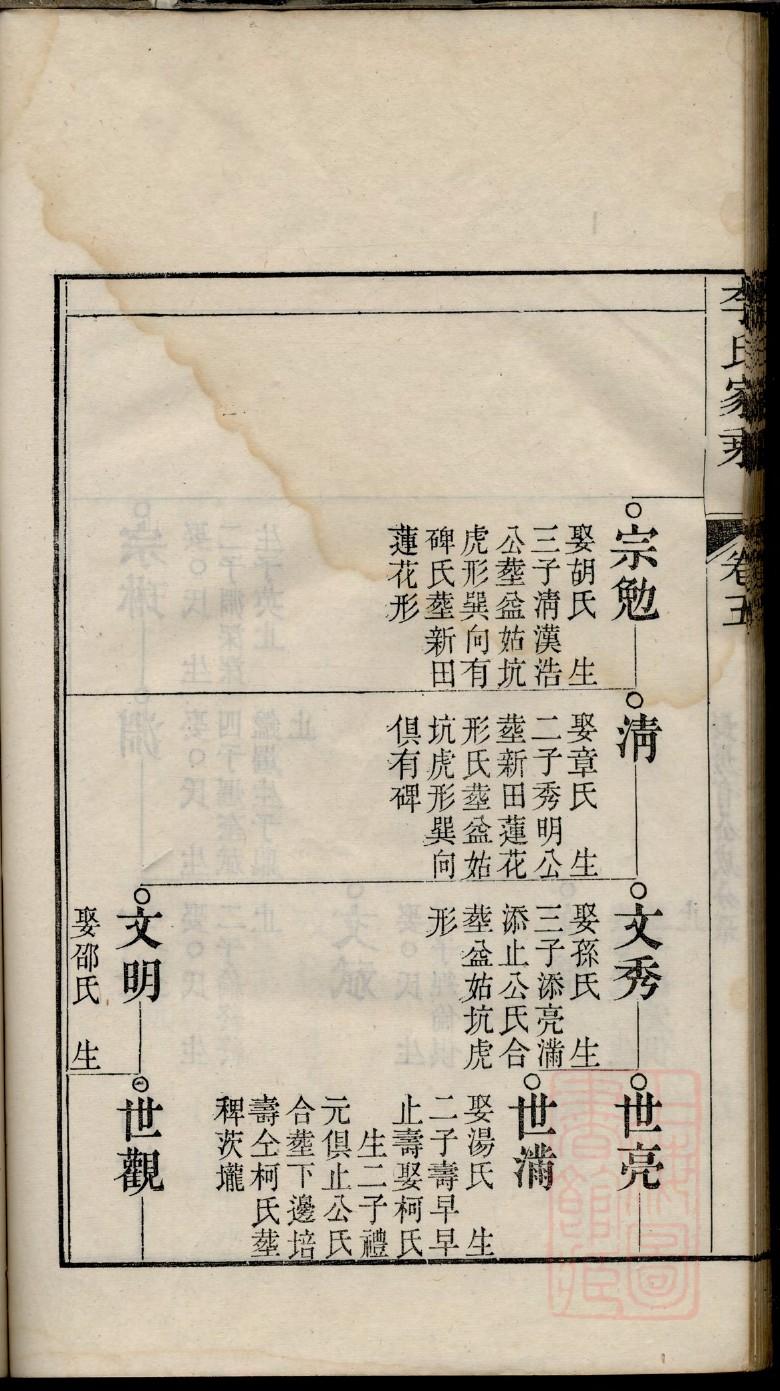 李氏家乘
卷五
宗勉
娶胡氏 生
三子淸漢浩
公塟盆姑坑
虎形巽向有
碑氏塟新田
蓮花形
淸
娶章氏 生
二子秀明公
塟新田蓮花
形氏塟盆姑
坑虎形巽向
俱有碑
文秀
娶孫氏 生
三子添亮滿
添止公氏合
塟盆姑坑虎
形
文明
娶邵氏 生
世亮
世滿
娶湯氏 生
二子壽早早
止壽娶柯氏
生二子禮
元俱止公氏
合塟下邊培
壽仝柯氏塟
稗茨壠
世觀